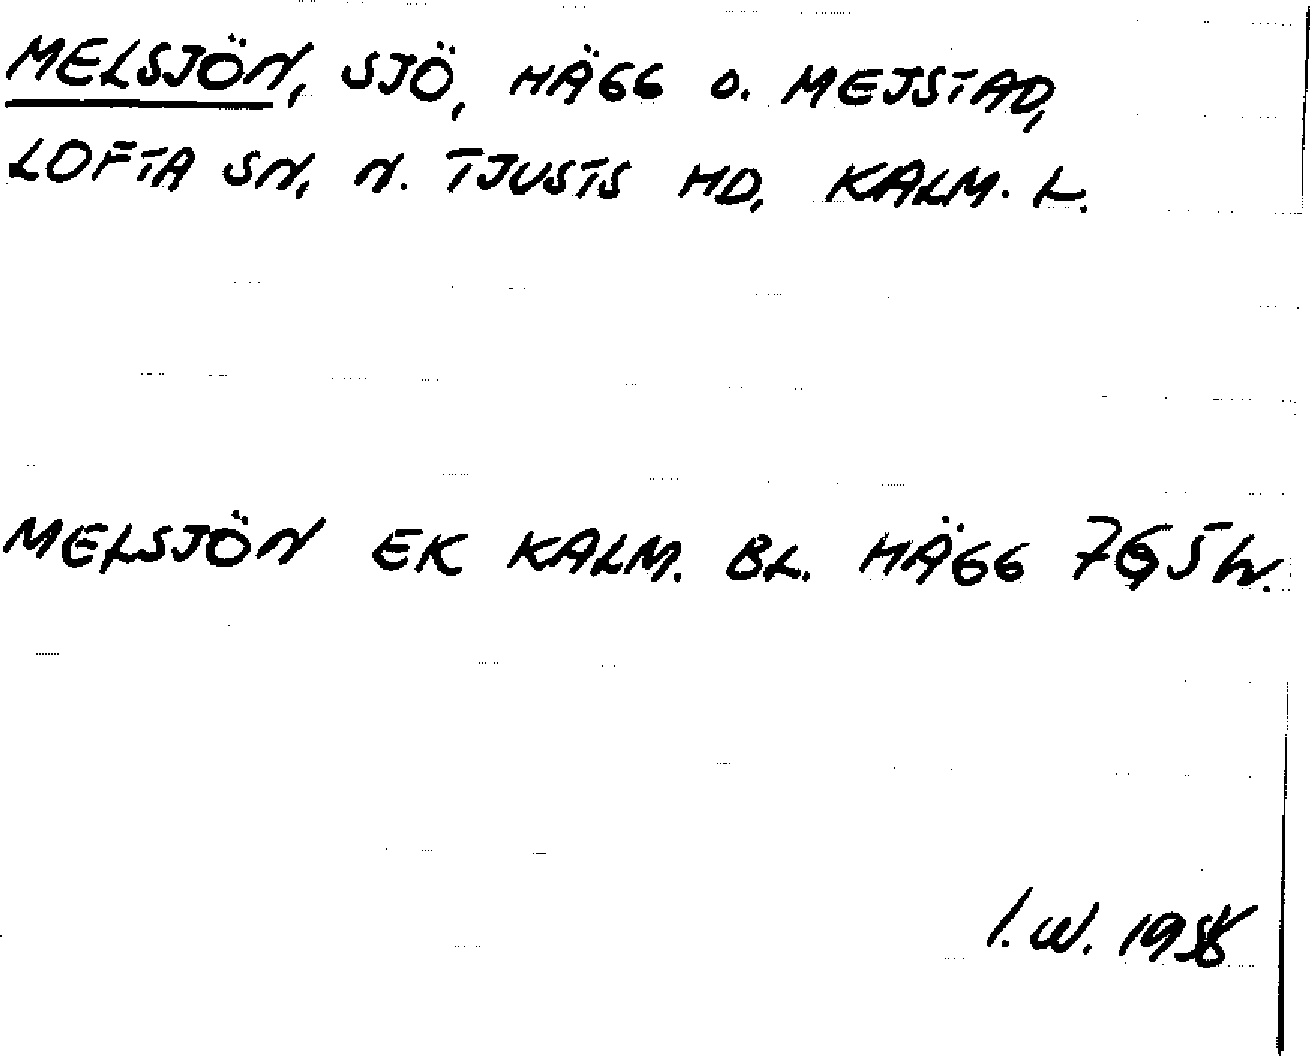 MELSJÖN, SJÖ, HÄGG O. MEJSTAD,
LOFTA SN, N. TJUSTS HD, KALM. L.
MELSJÖN EK KALM. BL. HÄGG
I.W.